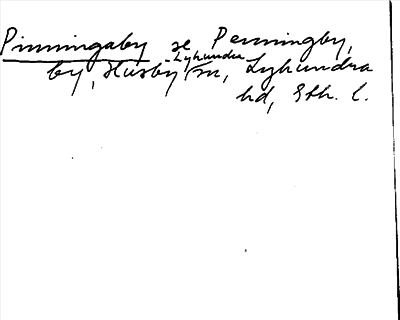 Pinningaby se Penningby,
by, Husby-Lyhundra sn, Lyhundra
hd, Sth. l.